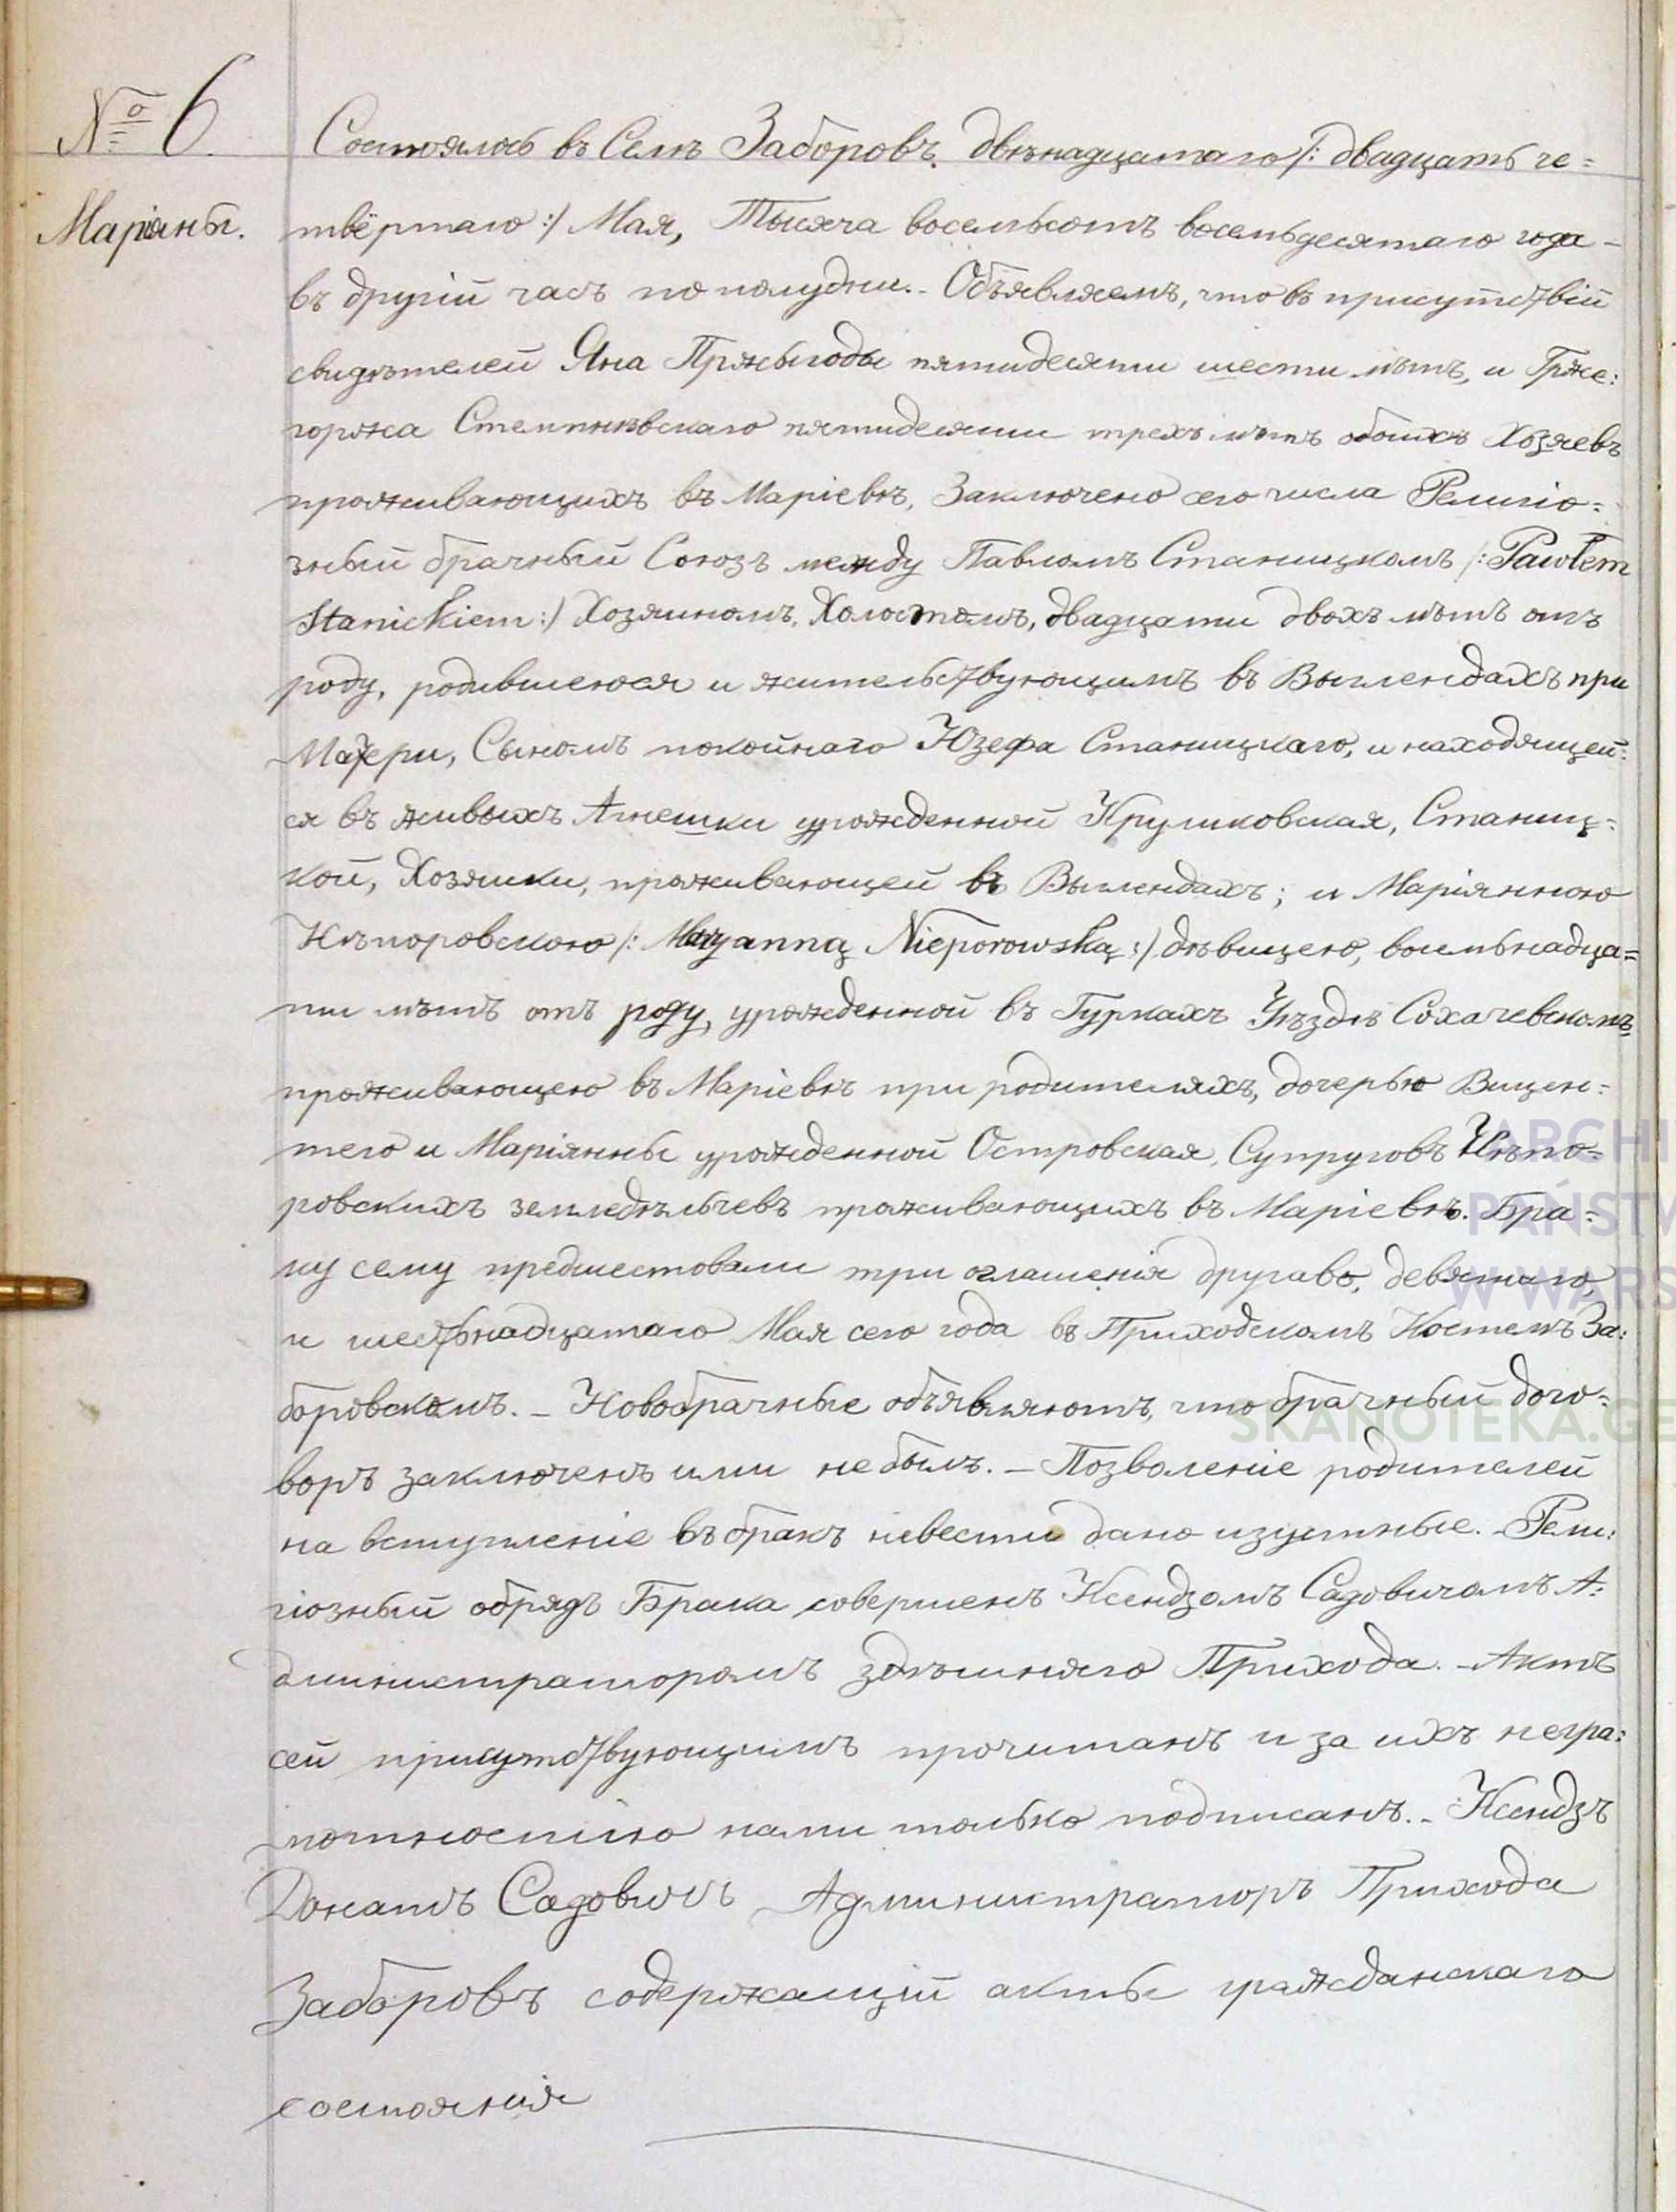 № 6.
Маріяны.
Состоялось въ Селѣ Заборовъ, двѣнадцатаго /: двадцать че=
твёртаго :/ Мая, Тысяча восемьсотъ восемьдесятаго года –
въ другій часъ по полудни. – Объявляемъ, что въ присутствій
свидѣтелей Яна Пржыгоды пятидесяти шести лѣтъ, и Грже:
горжа Стемпнѣвскаго пятидесяти трехъ лѣтъ обоихъ Хозяевъ
проживающихъ въ Маріевѣ, Заключено сего числа Религіо=
зный брачный Союзъ между Павломъ Станицкомъ /: Pawłem
Stanickiem :/ Хозяиномъ, Холостымъ, двадцати двохъ лѣтъ отъ
роду, родившегося и жительствующимъ въ Выглендахъ при
Матери, Сыномъ покойнаго Юзефа Станицкаго, и находящей:
ся въ живыхъ Агнешки урожденной Крулиховская, Станиц=
кой, Хозяйки, проживающей въ Выглендахъ; и Маріянною
Нѣпоровскою /: Maryanną Nieporowską :/ дѣвицею, восемьнадца=
ти лѣтъ отъ роду, урожденной въ Гуркахъ Уѣздѣ Сохачевскомъ
проживающею въ Маріевѣ при родителяхъ, дочерью Вицен=
тего и Маріянны урожденной Островская, Супруговъ Нѣпо=
ровскихъ земледѣльчевъ проживающихъ въ Маріевѣ. Бра=
ку сему предшествовали три оглашенія другаво, девятаго,
и шестьнадцатаго Мая сего года въ Приходскомъ Костелѣ За:
боровскомъ. – Новобрачные объявляютъ, что брачный дого=
воръ заключенъ ими не былъ. – Позволеніе родителей
на вступленіе въ бракъ невести дано изустные. – Рели:
гіозный обрядъ Брака совершенъ Ксендзомъ Садовичомъ А:
дминистраторомъ здѣшняго Прихода. – Актъ
сей присутствующимъ прочитанъ и за ихъ негра:
мотностію нами только подписанъ. – Ксендзъ
Донатъ Садовичъ Администраторъ Прихода
Заборовъ содержащій акты гражданскаго
состоянія
ARCHI
PAŃSTW
W WARS
SKANOTEKA.GE